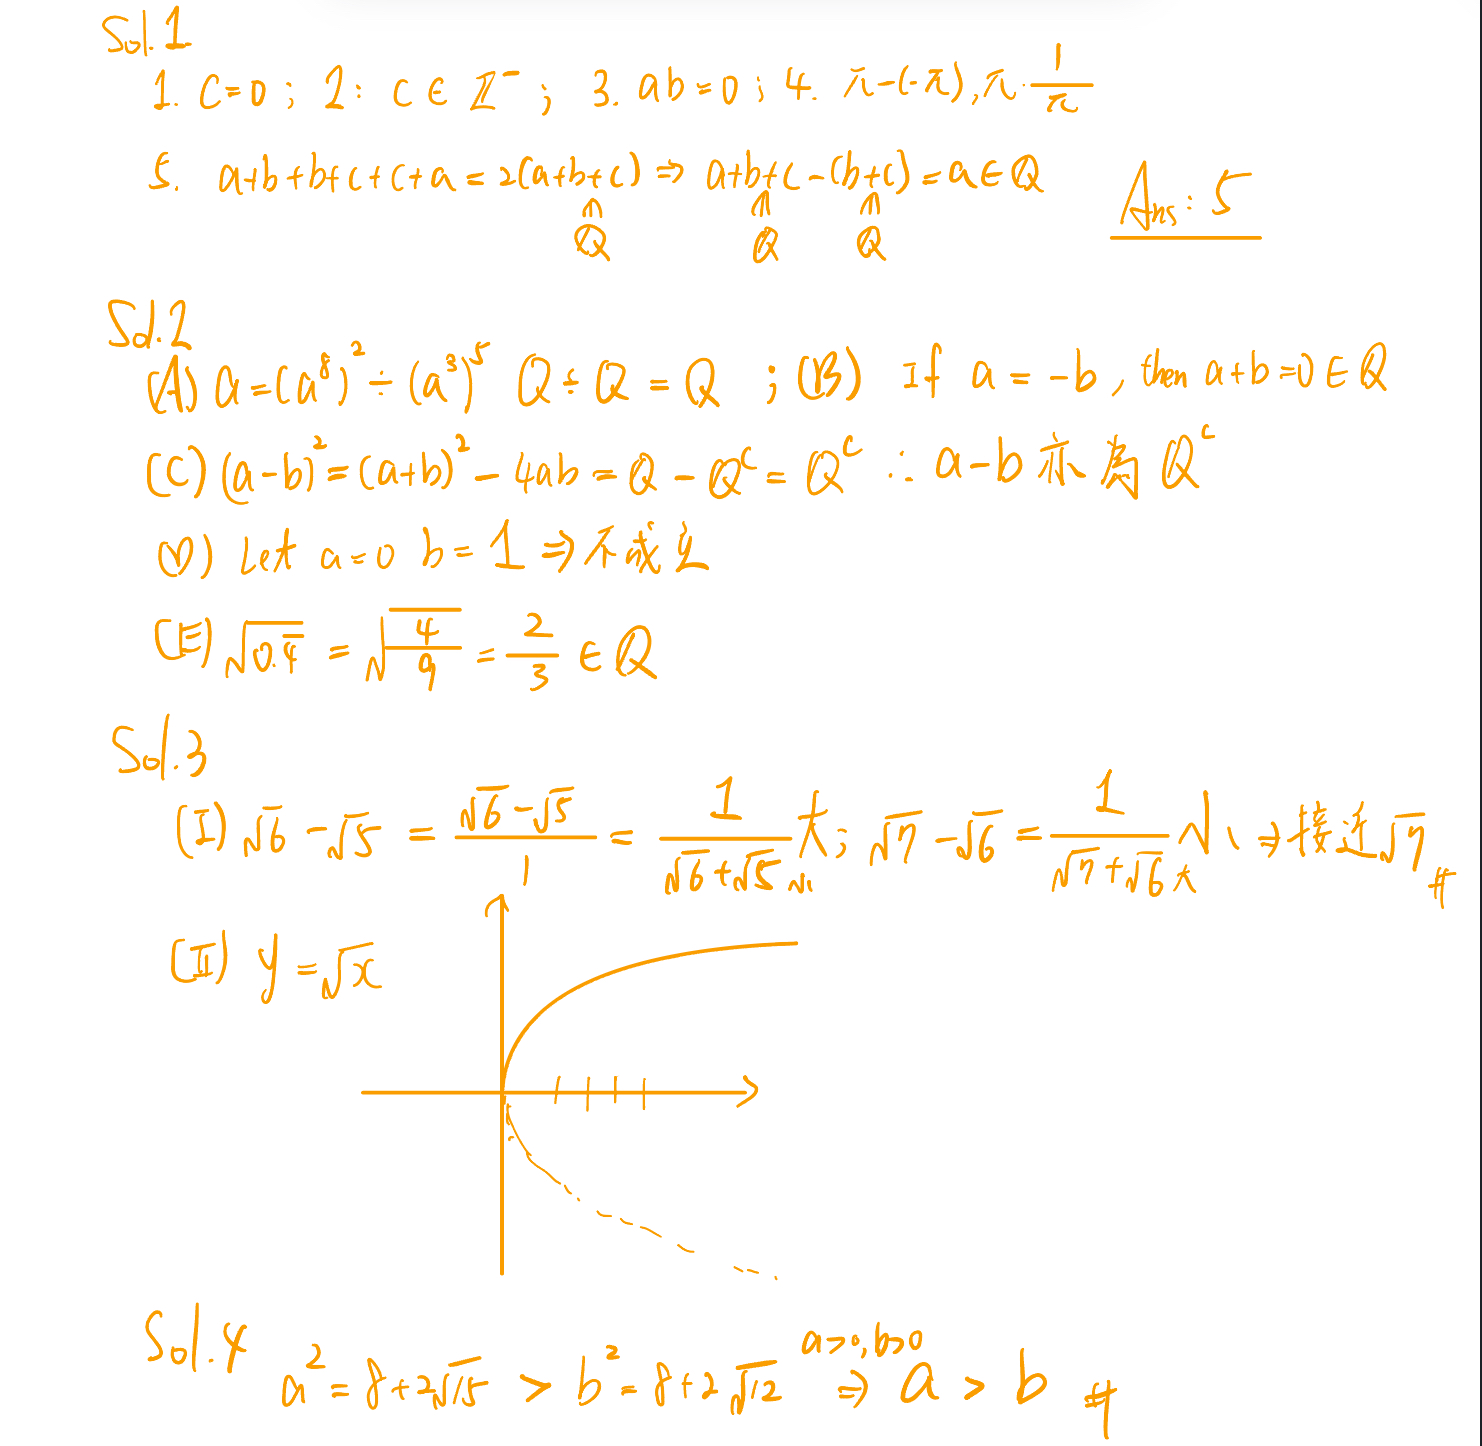 Sol.1
1. C=0 ; 2: C ∈ ℤ⁻ ; 3. ab=0 ; 4. π-(-π), π·1/π
5. a+b+b+c+c+a=2(a+b+c) ⇒ a+b+c-(b+c)=a∈ℚ
⋒ ⋒ ⋒
ℚ ℚ ℚ
Ans: 5
Sol.2
(A) a=(a⁸)²÷(a³)⁵ ℚ÷ℚ=ℚ ; (B) If a=-b, then a+b=0∈ℚ
(C) (a-b)²=(a+b)²-4ab=ℚ-ℚᶜ=ℚᶜ ∴a-b亦為ℚᶜ
(D) Let a=0 b=1 ⇒不成立
(E) √0.4̅ = √(4/9) = 2/3 ∈ℚ
Sol.3
(I) √6-√5 = (√6-√5)/1 = 1/(√6+√5 小) 大; √7-√6 = 1/(√7+√6 大) 小 ⇒接近√7 #
(II) y=√x
Sol.4
a²=8+2√15 > b²=8+2√12 a>0,b>0 ⇒ a>b #